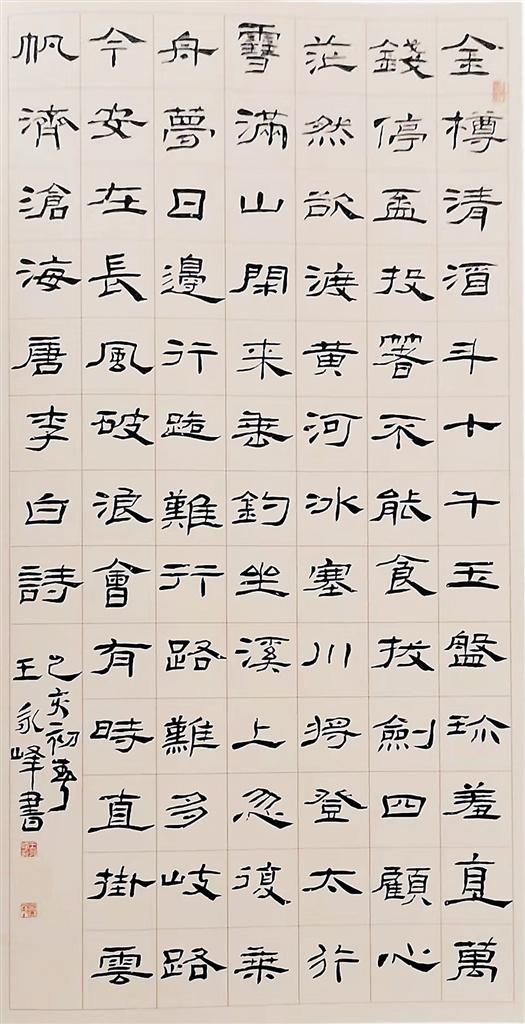 金樽清酒斗十千玉盤珍羞直萬
錢停盃投箸不能食拔劍四顧心
茫然欲渡黄河冰塞川將登太行
雪滿山閑来垂釣坐溪上忽復乗
舟夢日邊行路難行路難多岐路
今安在長風破浪會有時直掛雲
帆濟滄海唐李白詩
己亥初春
王永峰書